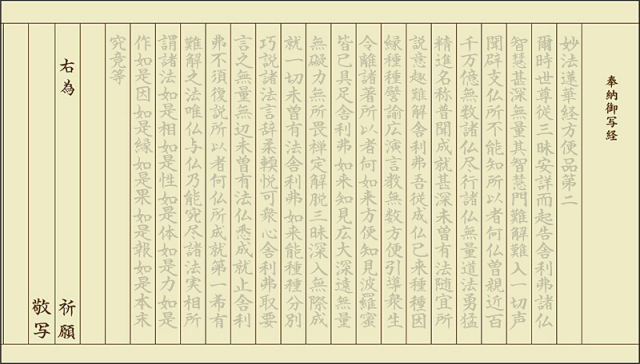 奉納御写経
妙法蓮華経方便品第二
爾時世尊従三昧安詳而起告舎利弗諸仏
智慧甚深無量其智慧門難解難入一切声
聞辟支仏所不能知所以者何仏曽親近百
千万億無数諸仏尽行諸仏無量道法勇猛
精進名称普聞成就甚深未曽有法随宜所
説意趣難解舎利弗吾従成仏已来種種因
縁種種譬諭広演言教無数方便引導衆生
令離諸著所以者何如来方便知見波羅蜜
皆已具足舎利弗如来知見広大深遠無量
無礙力無所畏禅定解脱三昧深入無際成
就一切未曽有法舎利弗如来能種種分別
巧説諸法言辞柔輭悦可衆心舎利弗取要
言之無量無辺未曽有法仏悉成就止舎利
弗不須復説所以者何仏所成就第一希有
難解之法唯仏与仏乃能究尽諸法実相所
謂諸法如是相如是性如是体如是力如是
作如是因如是縁如是果如是報如是本末
究竟等
右為
祈願
敬写